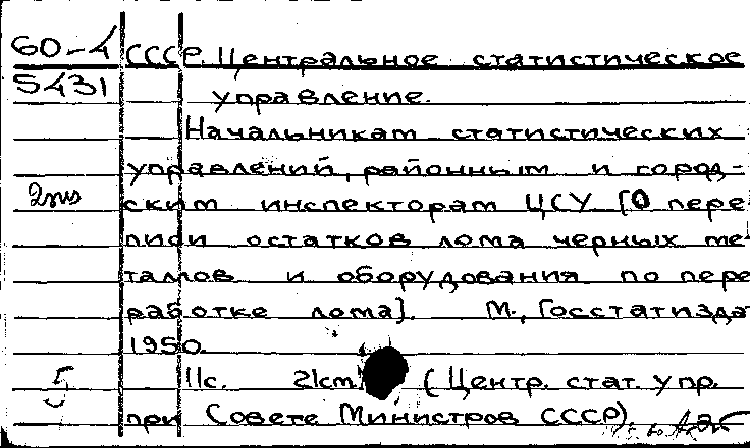 60-4 СССР. Центральное статистическое
5431 управление.
Начальникам статистических
управлений, районным и город-
2пиз ским инспекторам ЦСУ [О пере
писи остатков лома черных ме
таллов и оборудования по пере
работке лома]. М., Госстатизда
1950.
5 11с. 21cm. (Центр. стат. упр.
при Совете Министров СССР)